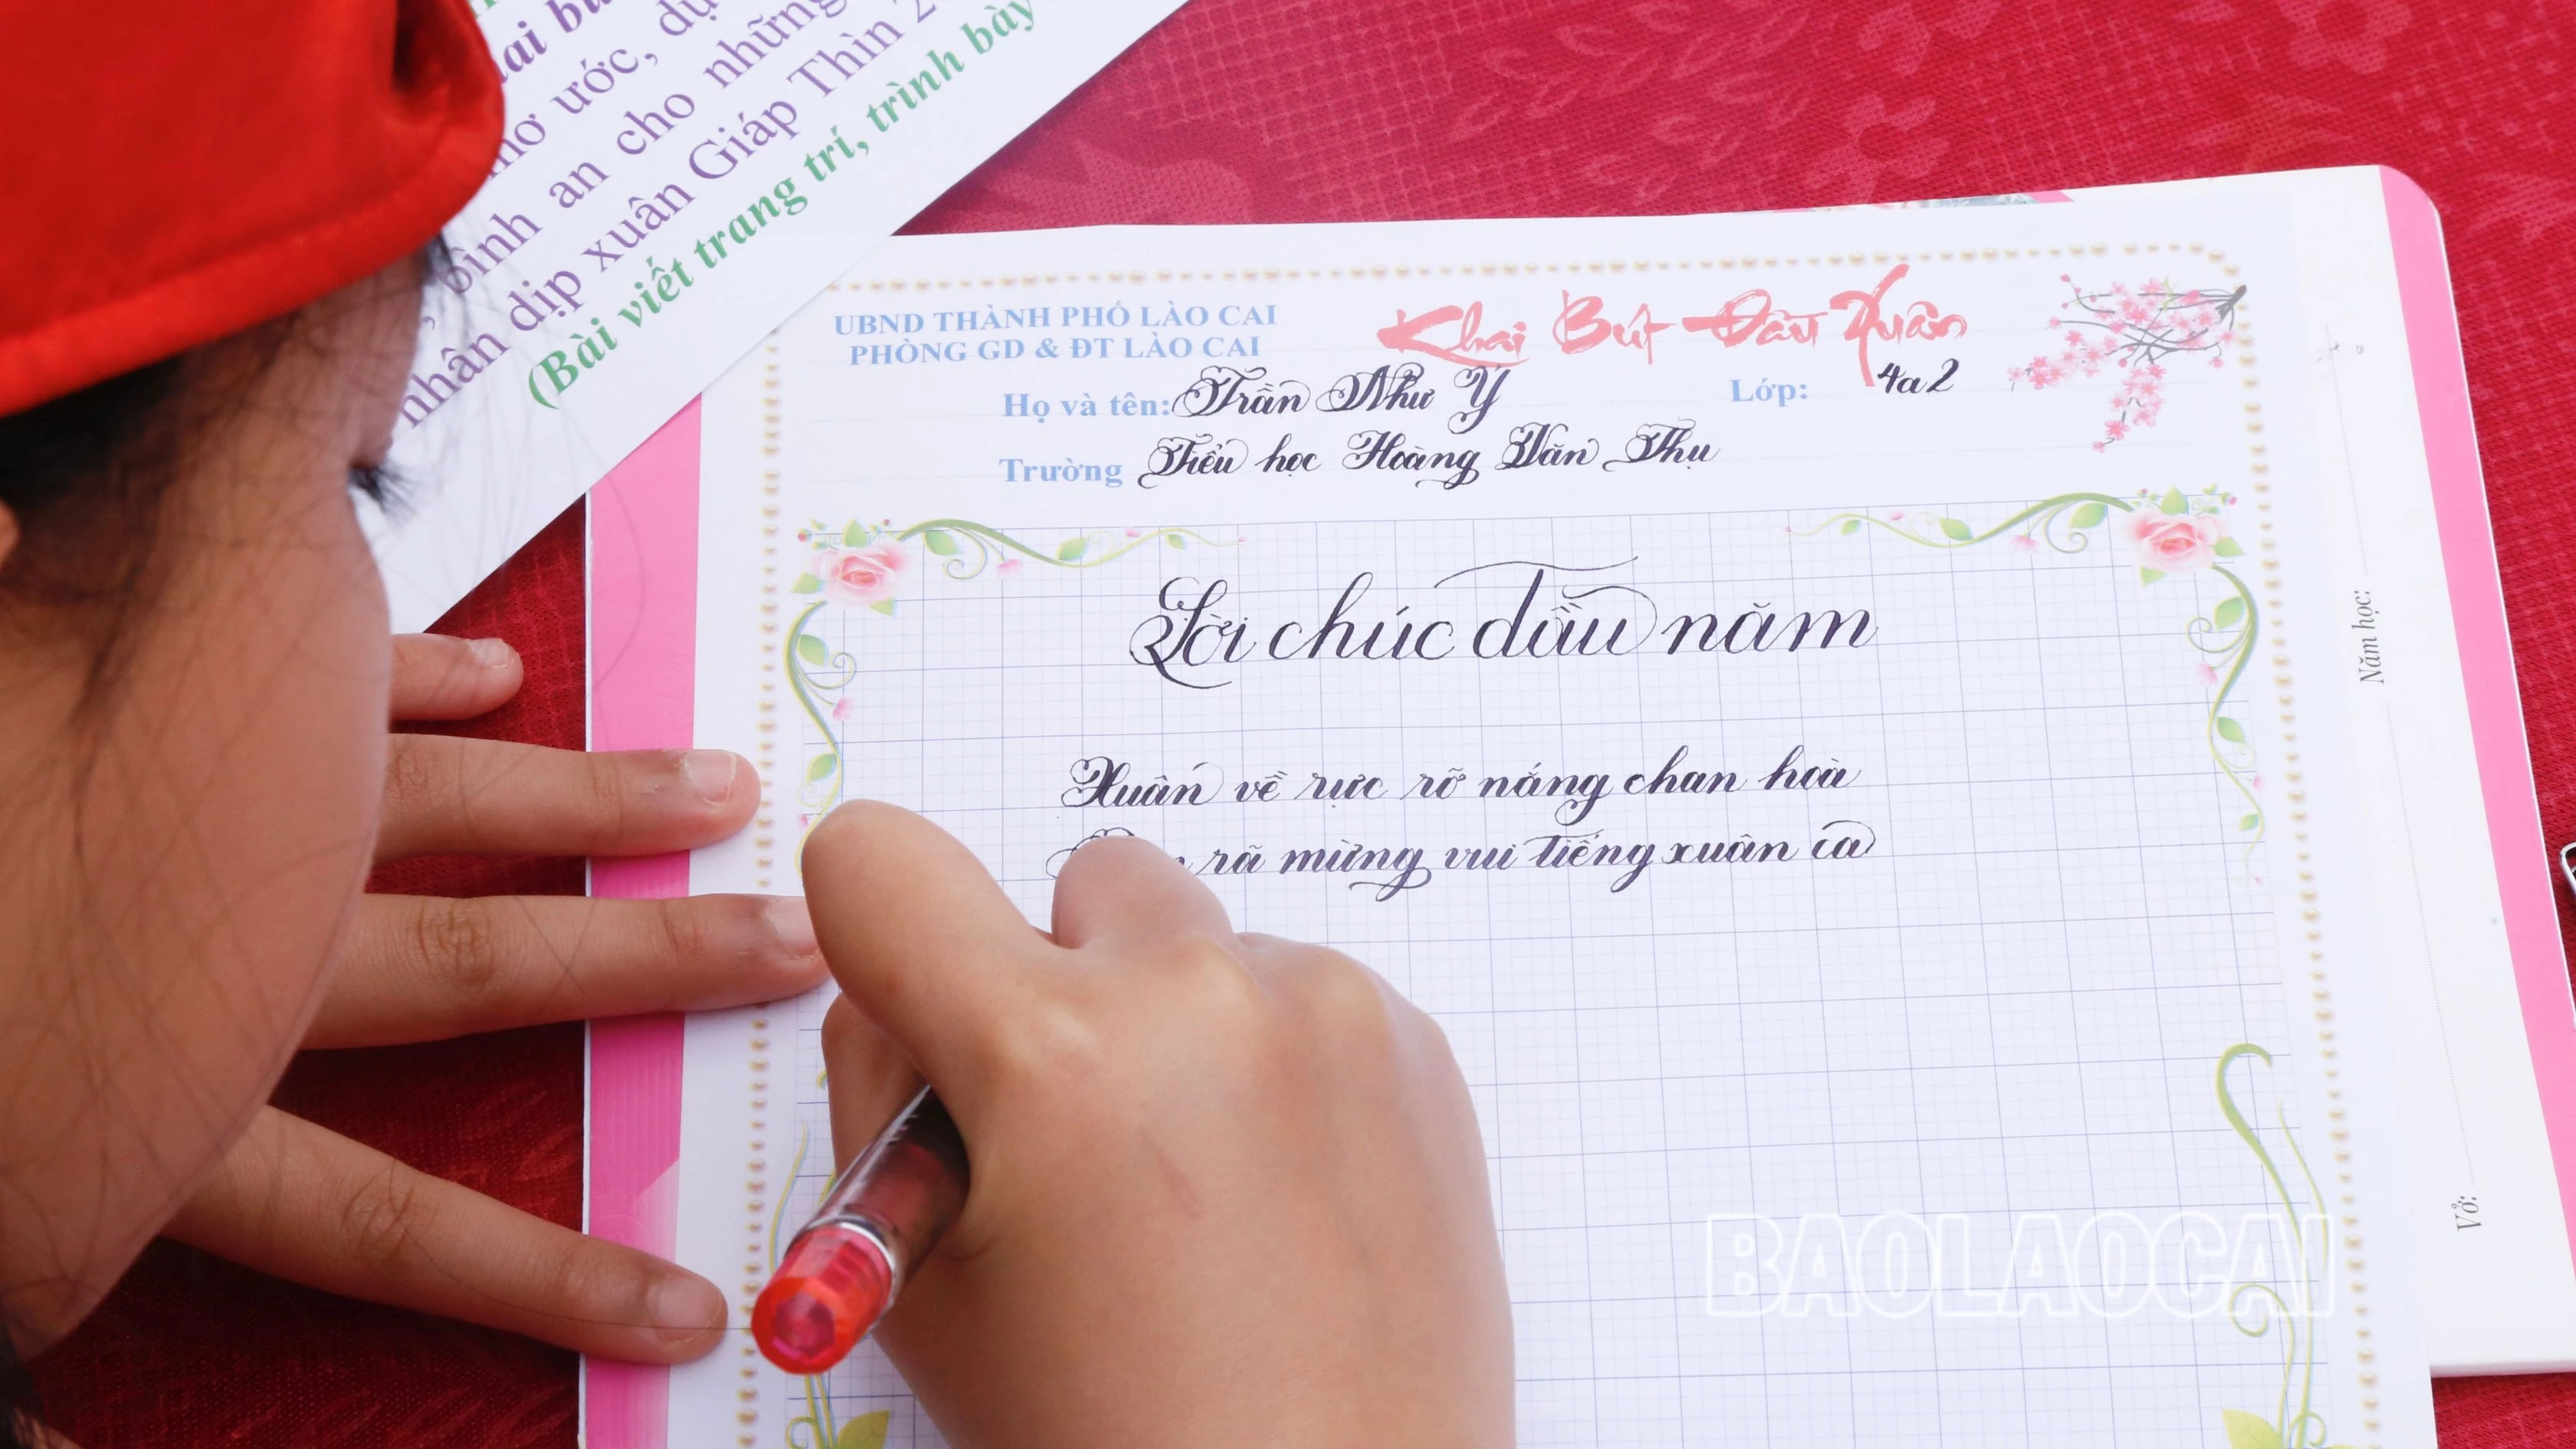 ai bú
mơ ước, dự
bình an cho những
nhân dịp xuân Giáp Thìn 2
(Bài viết trang trí, trình bày
UBND THÀNH PHỐ LÀO CAI
PHÒNG GD & ĐT LÀO CAI
Khai Bút Đầu Xuân
Họ và tên: Trần Như Ý Lớp: 4a2
Trường Tiểu học Hoàng Văn Thụ
Lời chúc đầu năm
Xuân về rực rỡ nắng chan hoà
rã mừng vui tiếng xuân ca
Năm học:
Vở:
BAOLAOCAI